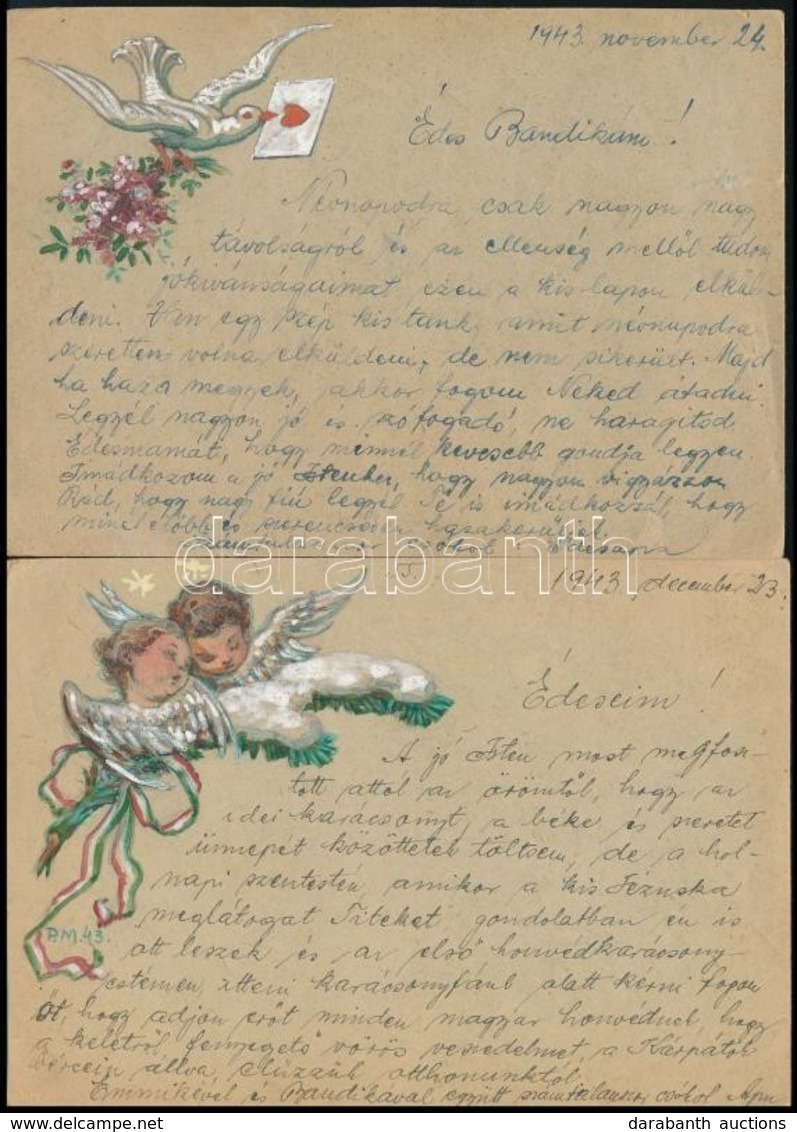 1943. november 24.
Édes Bandikám!
Néonapodra csak nagyon nagy
távolságról és az ellenség mellől tudom
jókívánságaimat ezen a kis lapon elkül-
deni. Van egy szép kis tank, amit néonapodra
szerettem volna elküldeni, de nem sikerült. Majd
ha haza megyek, akkor fogom Neked átadni.
Legyél nagyon jó és szófogadó, ne haragitsd
Édesmamát, hogy minnél kevesebb gondja legyen.
Imádkozom a jó Istenhez, hogy nagyon vigyázzon
Rád, hogy nagy fiú legyél. Te is imádkozzál, hogy
minél előbb és szerencsésen hazakerüljek.
számtalanszor csókol Édesapa
darabanth
1943. december 23.
Édeseim!
A jó Isten most megfosz-
tott attól az örömtől, hogy az
idei karácsonyt, a béke és szeretet
ünnepét közöttetek töltsem, de a hol-
napi szentestén, amikor a kis Jézuska
meglátogat Titeket gondolatban én is
ott leszek és az első honvédkarácsony-
estémen, itteni karácsonyfánk alatt kérni fogom
Őt, hogy adjon erőt minden magyar honvédnek, hogy
a keletről fenyegető vörös veszedelmet, a Kárpátok
bércein állva, elűzzük otthonunktól.
Emmikével és Bandikával együtt számtalanszor csókol Apu
P.M. 43.
darabanth auctions
darabanth auctions